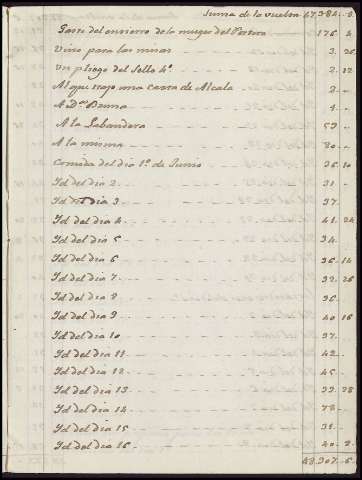 Suma de la vuelta 47.384..2
Gasto del entierro de la muger del Portero 176..4
Vino para las misas 3..26
Un pliego del Sello 4º 2..12
Al que trajo una carta de Alcala 2..
A Dª Bruna 4..
A la Labandera 59..
A la misma 20..
Comida del dia 1º de Junio 36..10
Id del dia 2 31..
Id del dia 3 37.
Id del dia 4 41..24
Id del dia 5 34.
Id del dia 6 36..14
Id del dia 7 32..26
Id del dia 8 36..
Id del dia 9 40..16
Id del dia 10 37.
Id del dia 11 42..
Id del dia 12 45..
Id del dia 13 39..28
Id del dia 14 78..
Id del dia 15 31..
Id del dia 16 40..2
48.307..6